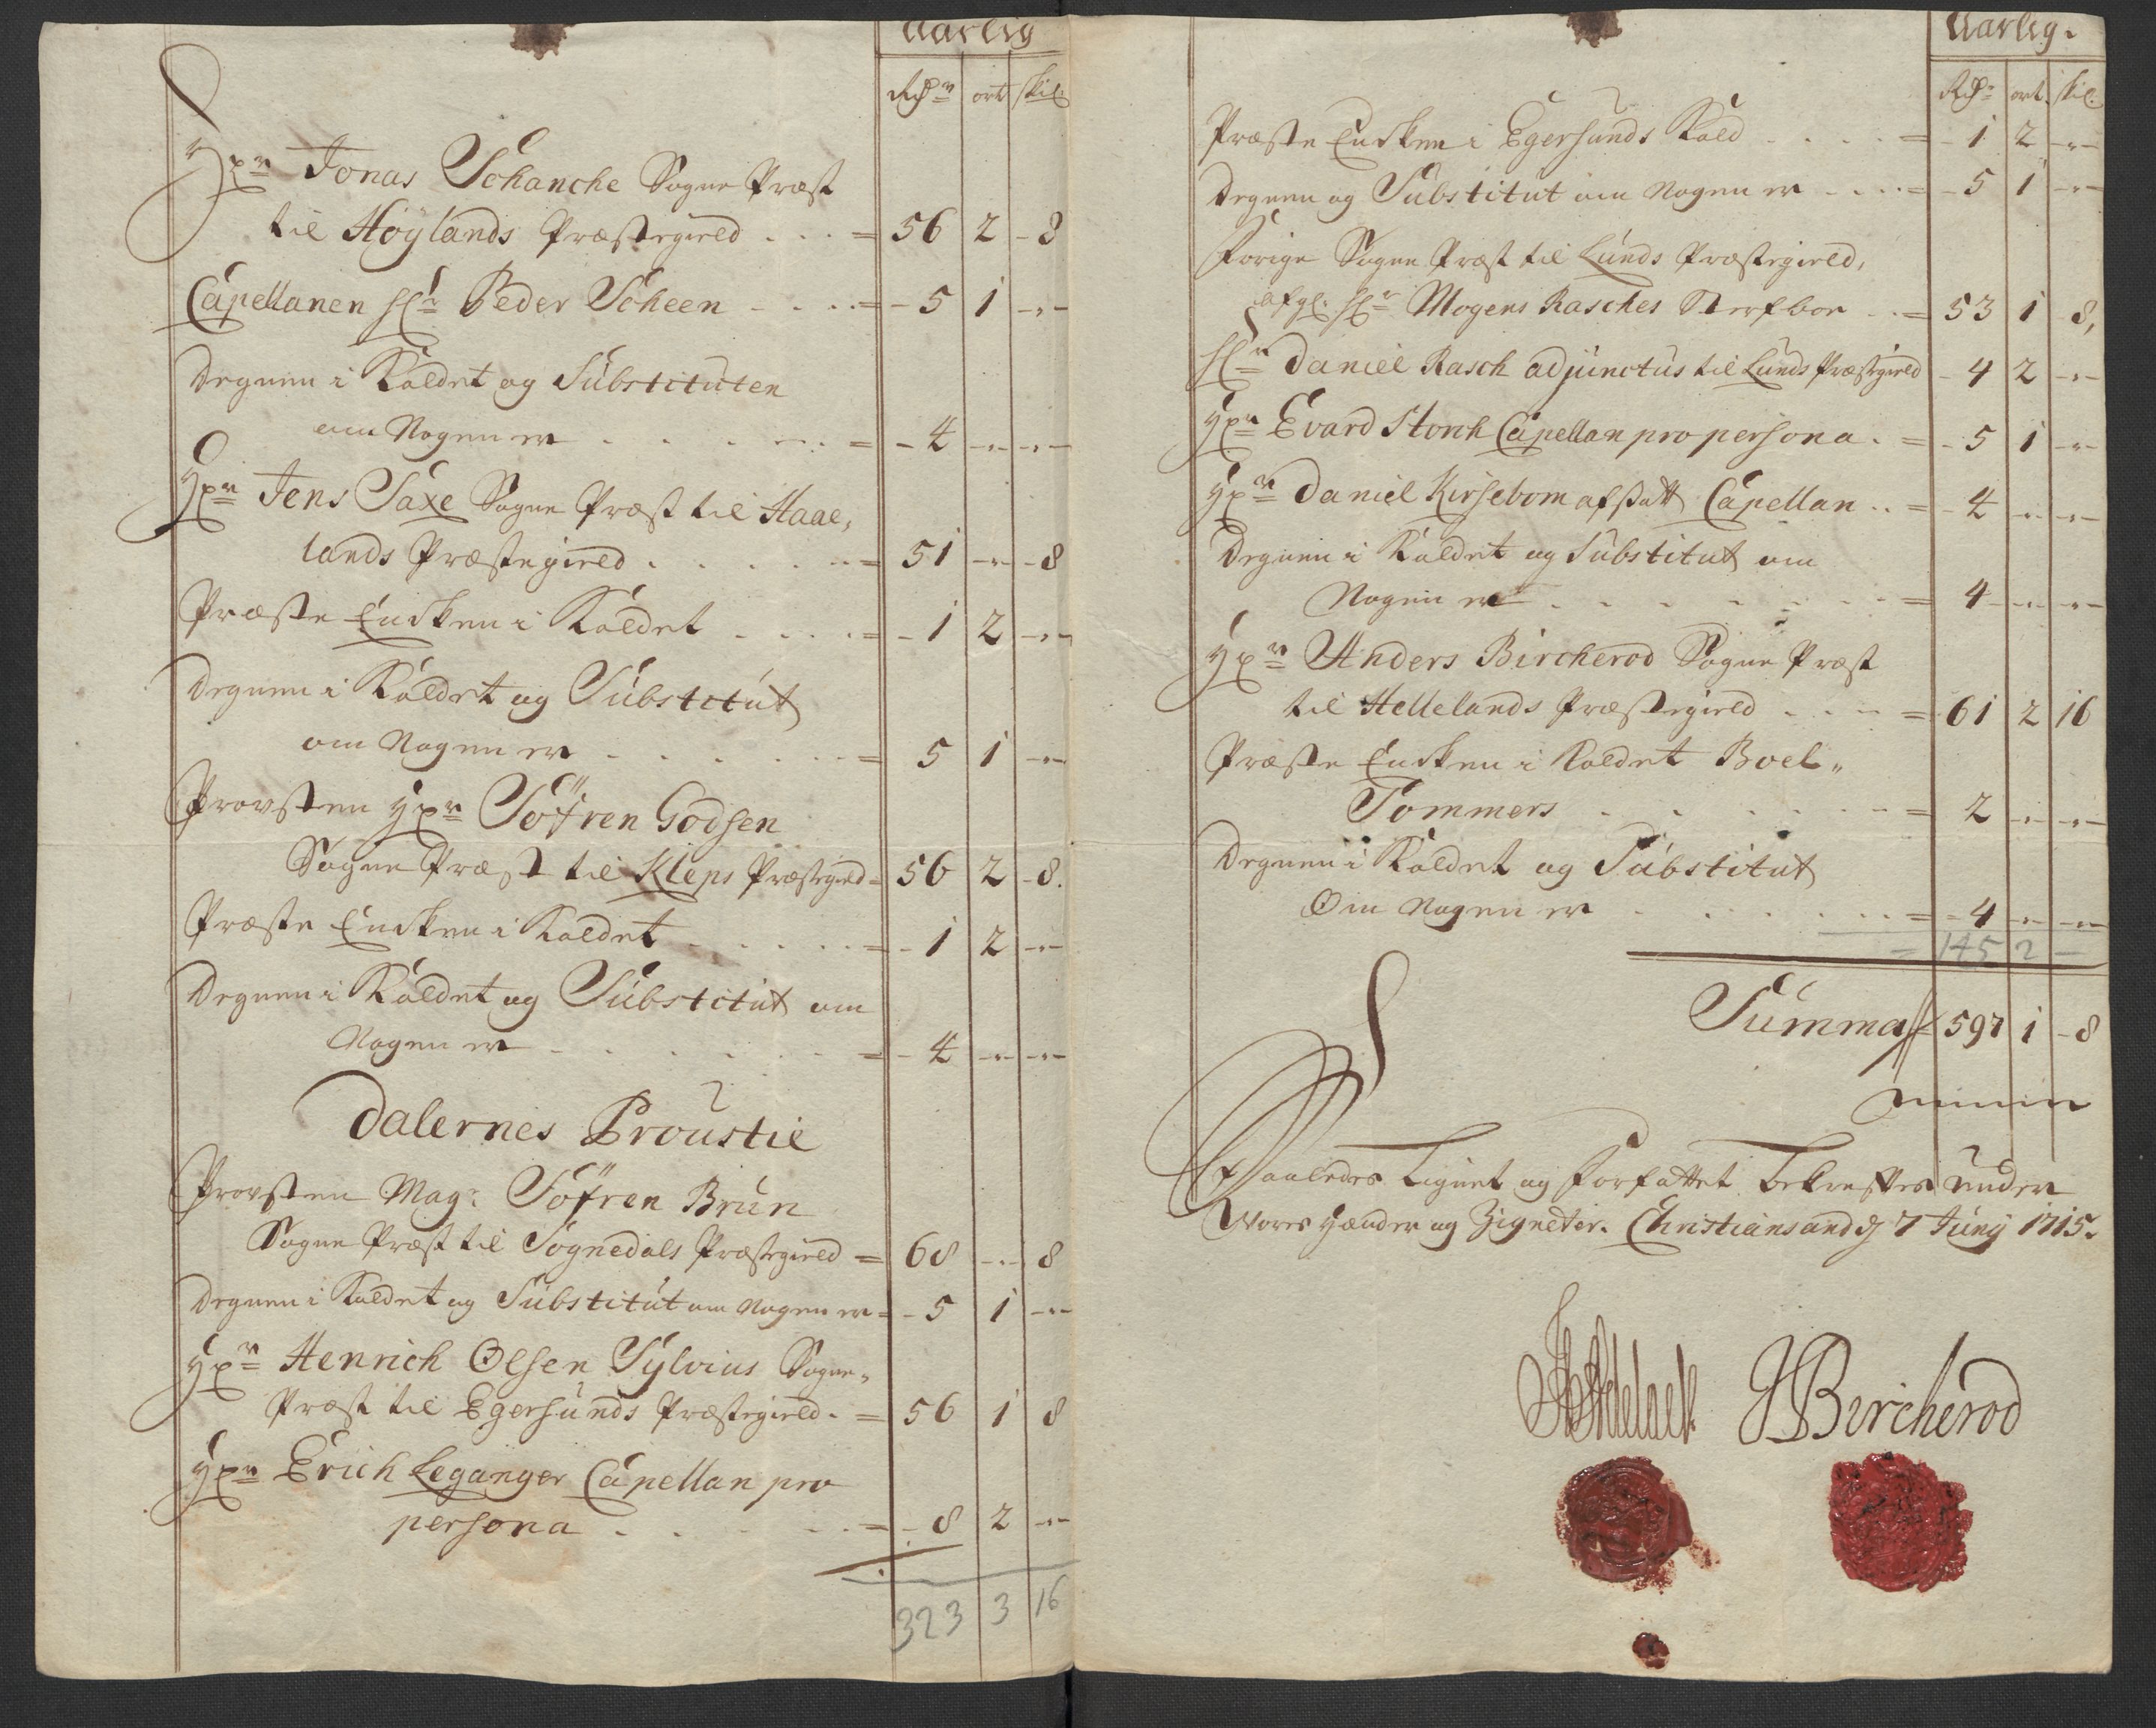 Aarlig
Rdr ort skil:
Hr Jonas Schanche Sogne Præst
til Høylands Præstegield . . . = 56 2 - 8
Capellanen Hr Peder Scheen - . . . = - 5 1 - " -
Degnen i Kaldet og Substituten
om Nogen er . . . . . = - 4 - " - - " -
Hr Jens Saxe Sogne Præst til Haae,
lands Præstegield . . . . . = 51 - " - - 8
Præste Enchen i Kaldet . . . . = - 1 2 - " -
Degnen i Kaldet og Substitut
om Nogen er . . . . . . = 5 1 - " -
Provsten Hr Söfren Godsen
Sogne Præst til Kleps Præstegield = 56 2 - 8.
Præste Enchen i Kaldet . . . . . = - 1 2 - " -
Degnen i Kaldet og Substitut om
Nogen er . . . . . . . = - 4 - " - - " -
Dalernes Proustie
Provsten Magr Söfren Brun
Sogne Præst til Sognedals Præstegield = 68 - " - 8
Degnen i Kaldet og Substitut om Nogen er = - 5 1 - " -
Hr Henrich Olsen Sylvius Sogne,
Præst til Egersunds Præstegield . = 56 1 8
Hr Erich Leganger Capellan pro
persona . . . . . = - 8 2 - " -
323 3 16
Aarlig.
Rdr ort. skil:
Præste Enchen i Egersunds Kald - . . . = - 1 2 - " -
Degnen og Substitut om Nogen er - . . . = - 5 1 - " -
Forige Sogne Præst til Lunds Præstegield,
afg: Hr Mogens Rasches Sterfboe . . = 53 1 8,
Hr Daniel Rasch adjunctus til Lunds Præstegield - 4 2 - " -
Hr Evard Storch Capellan pro persona . = - 5 1 - " -
Hr Daniel Kirsebom afsatt Capellan . . = - 4 - " - - " -
Degnen i Kaldet og Substitut om
Nogen er . . . . . . . = 4 - " - - " -
Hr Anders Bircherod Sogne Præst
til Hellelands Præstegield . . . . = 61 2 16
Præste Enchen i Kaldet Boel„
Tommers . . . . . . = 2 - " - - " -
Degnen i Kaldet og Substitut
Om Nogen er . . . . . . . = - 4 - " - - " -
= 145 2 -
Summa = 597 1 - 8
Saaledes Lignet og Forfattet Bekreftes under
Vores Hænder og Zigneter. Christiansand d 7 Junij 1715.
JBircherod